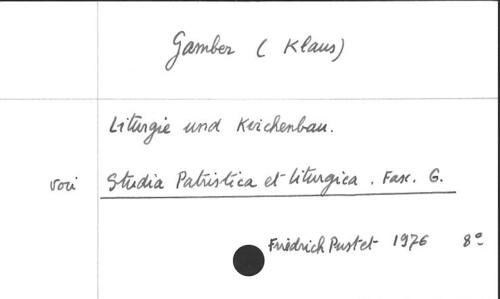 Gamber (Klaus)
Liturgie und Kirchenbau.
voir Studia Patristica et Liturgica. Fasc. 6.
Friedrich Pustet 1976 8°